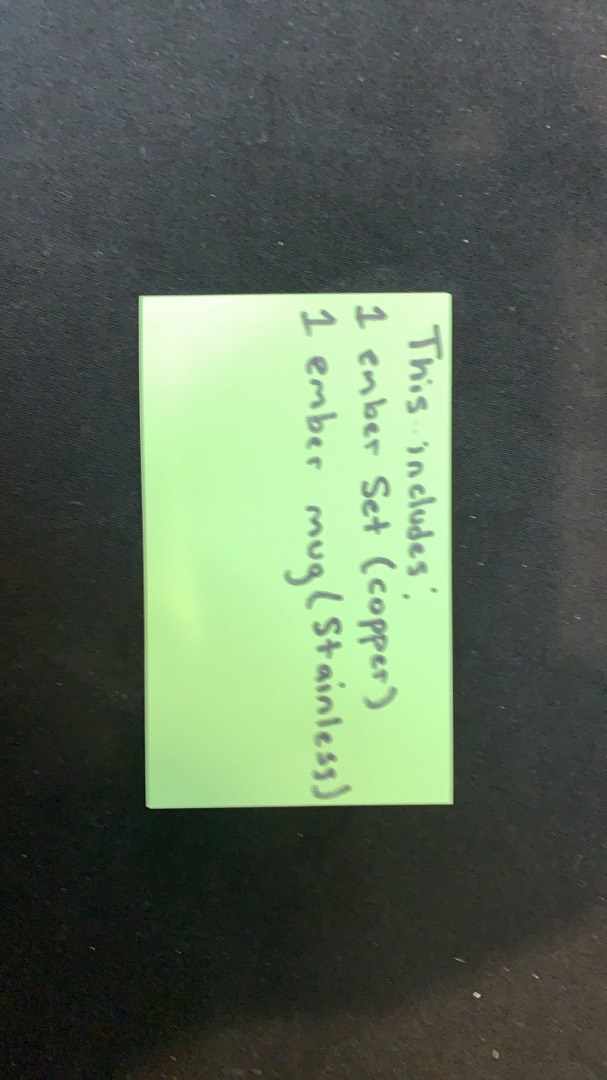 This includes:
1 ember Set (copper)
1 ember mug (Stainless)